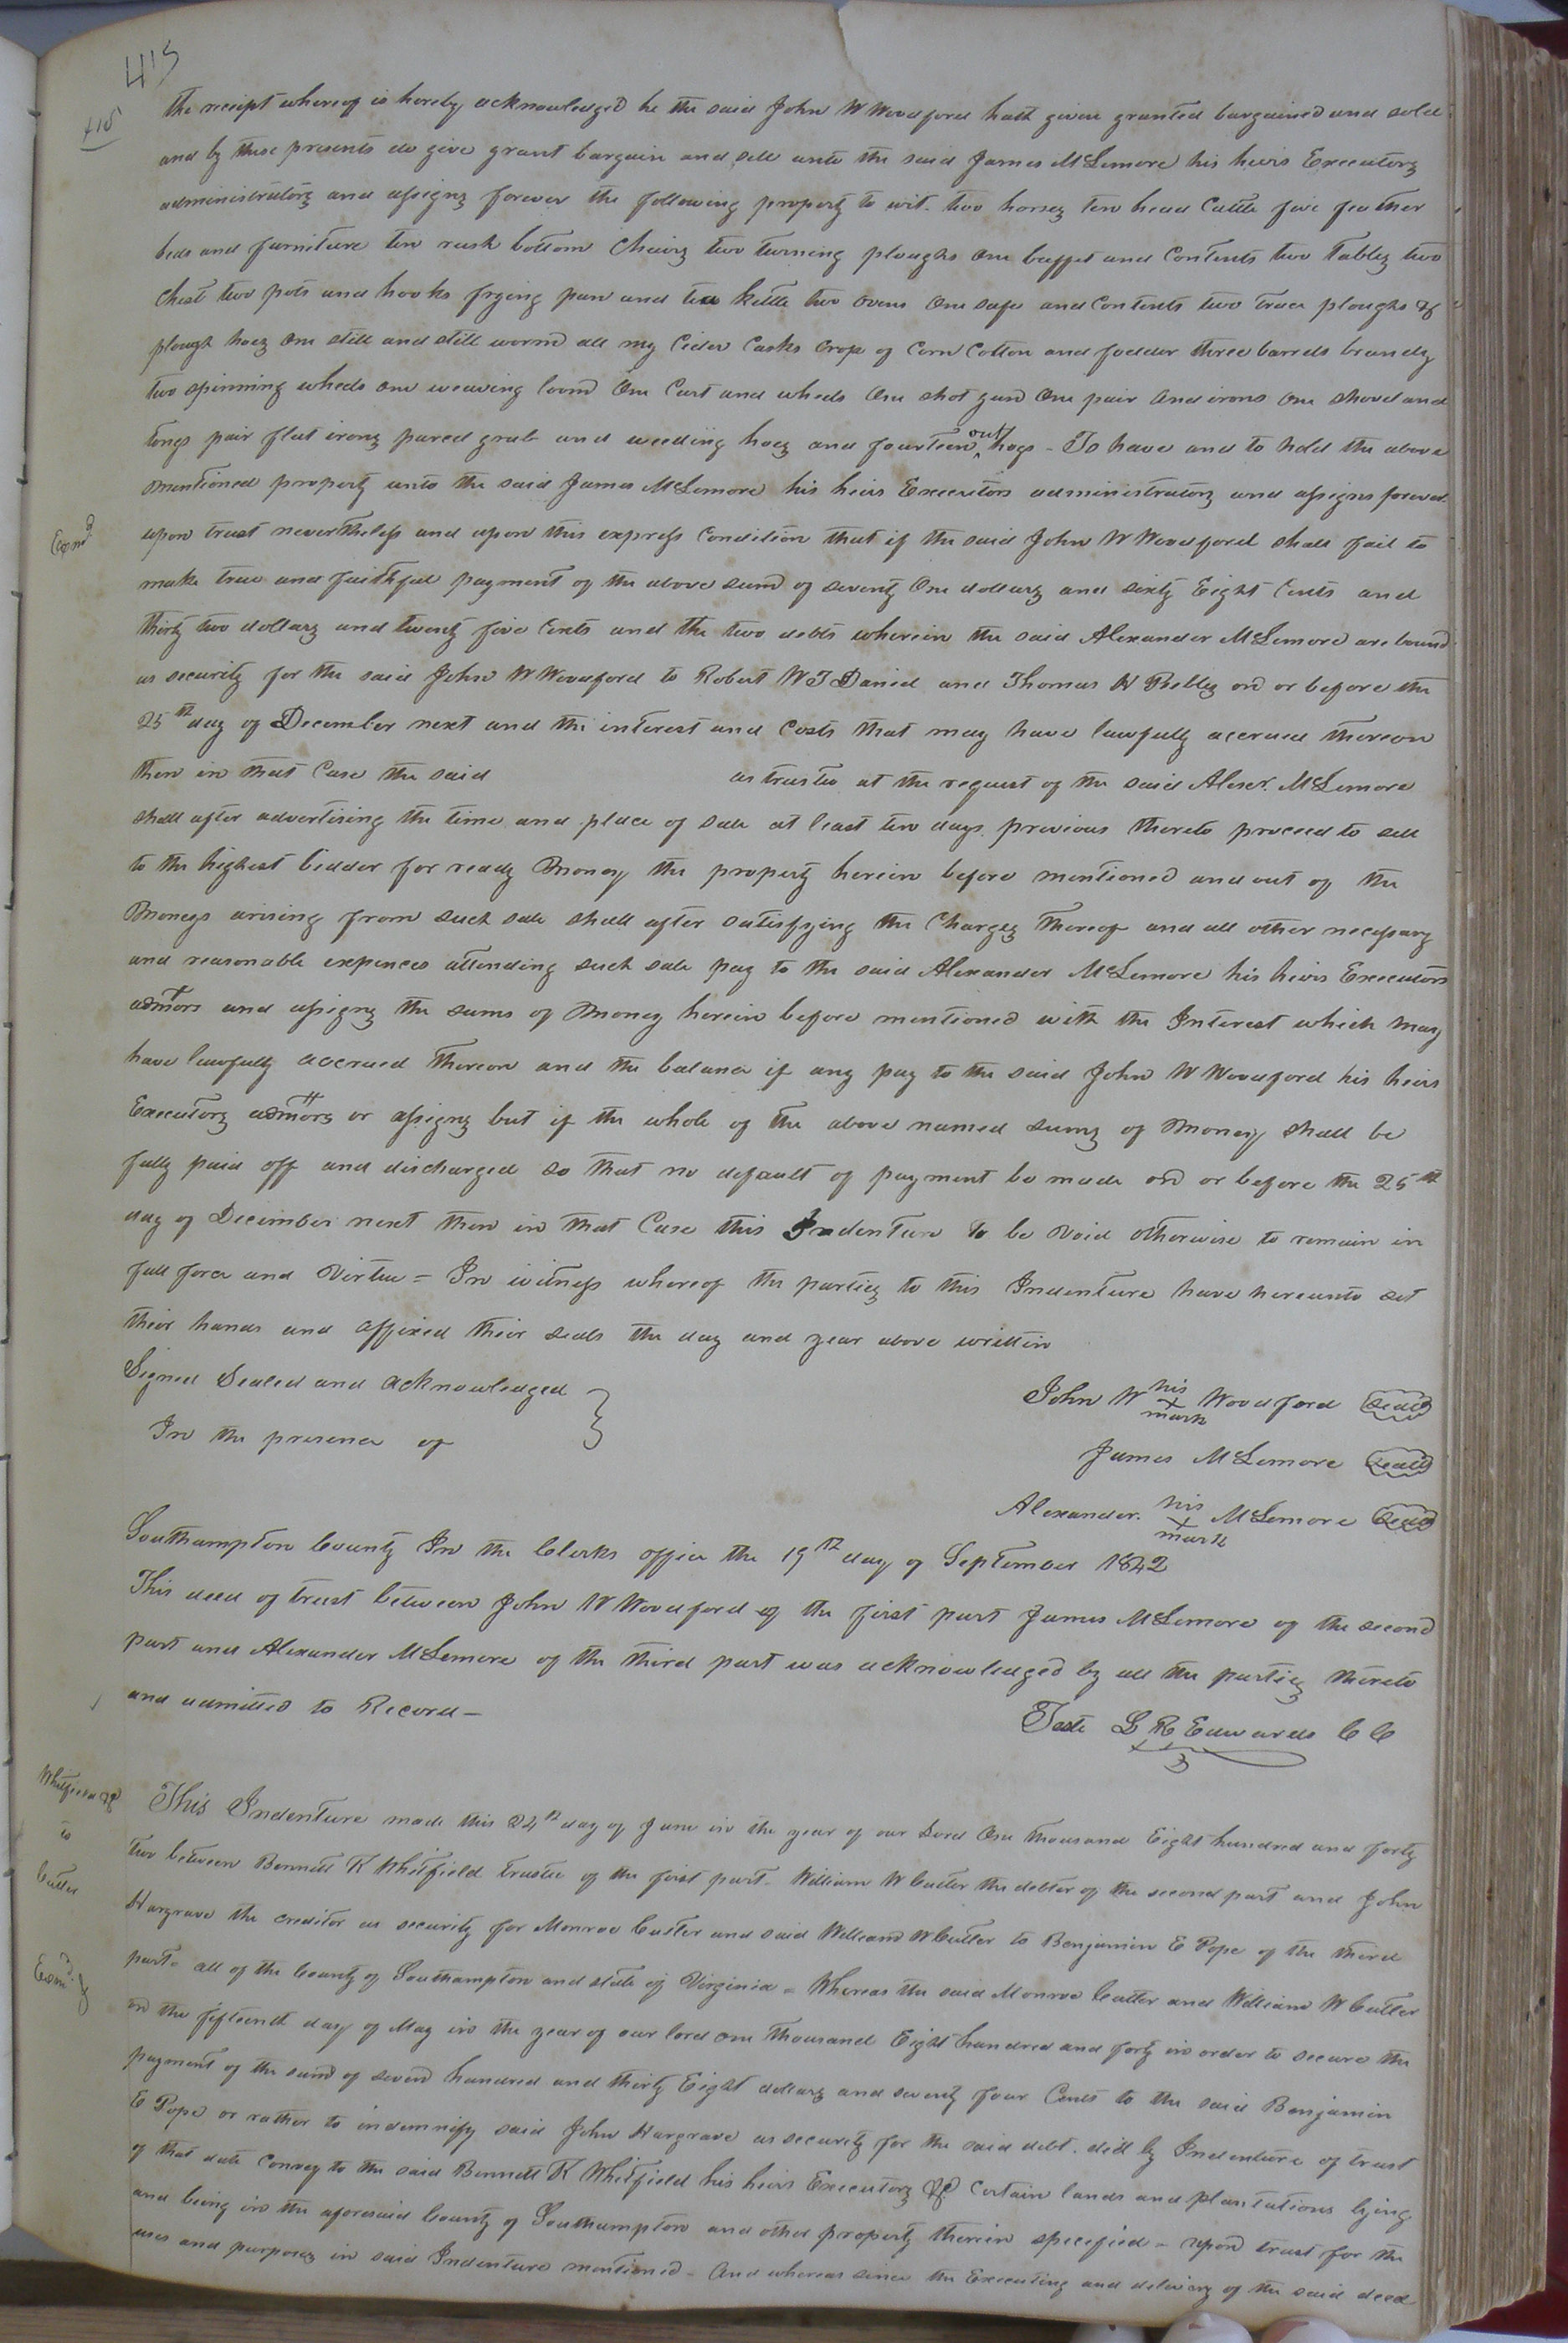 415
415
the receipt whereof is hereby acknowledged he the said John W Woodford hath given granted bargained and sold
and by these presents do give grant bargain and sell unto the said James McLemore his heirs Executors
administrators and assigns forever the following property to wit. two horses ten head Cattle five feather
beds and furniture ten rush bottom Chairs two turning ploughs one buffet and Contents two Tables two
Chest two pots and hooks frying pan and tea kettle two ovens one safe and Contents two trace ploughs &c
plough hoes one still and still worm all my Cider Casks Crop of Corn Cotton and fodder three barrels brandy
two spinning wheels one weaving loom One Cart and wheels One shot gun One pair Andirons one shovel and
tongs pair flat irons parcel grub and weeding hoes and fourteen out hogs - To have and to hold the above
mentioned property unto the said James McLemore his heirs Executors administrators and assigns forever
Examd
upon trust nevertheless and upon this express Condition that if the said John W Woodford shall fail to
make true and faithful payment of the above sum of seventy One dollars and sixty Eight Cents and
thirty two dollars and twenty five Cents and the two debts wherein the said Alexander McLemore are bound
as security for the said John W Woodford to Robert W T Daniel and Thomas H Peebles on or before the
25th day of December next and the interest and Costs that may have lawfully accrued thereon
then in that Case the said as trustee at the request of the said Alexr. McLemore
shall after advertising the time and place of sale at least ten days previous thereto proceed to sell
to the highest bidder for ready Money the property herein before mentioned and out of the
Moneys arising from such sale shall after satisfying the Charges thereof and all other necessary
and reasonable expences attending such sale pay to the said Alexander McLemore his heirs Executors
admors and assigns the sums of Money herein before mentioned with the Interest which may
have lawfully accrued thereon and the balance if any pay to the said John W Woodford his heirs
Executors admors or assigns but if the whole of the above named sums of Money shall be
fully paid off and discharged so that no default of payment be made on or before the 25th
day of December next then in that Case this Indenture to be void otherwise to remain in
full force and Virtue = In witness whereof the parties to this Indenture have hereunto set
their hands and affixed their seals the day and year above written
Signed Sealed and acknowledged
In the presence of
John W his X mark Woodford Seal
James McLemore Seal
Alexander. his X mark McLemore Seal
Southampton County In the Clerks office the 19th day of September 1842
This deed of trust between John W Woodford of the first part James McLemore of the second
part and Alexander McLemore of the third part was acknowledged by all the parties thereto
and admitted to Record -
Teste L R Edwards C C
Whitfield &c
to
Cutler
Examd
This Indenture made this 24th day of June in the year of our Lord One thousand Eight hundred and forty
two between Bennett K Whitfield trustee of the first part. William W Cutler the debtor of the second part and John
Hargrave the creditor as security for Monroe Cutler and said William W Cutler to Benjamin E Pope of the third
part. all of the County of Southampton and state of Virginia = Whereas the said Monroe Cutler and William W Cutler
on the fifteenth day of May in the year of our lord one thousand Eight hundred and forty in order to secure the
payment of the sum of seven hundred and thirty Eight dollars and seventy four Cents to the said Benjamin
E Pope or rather to indemnify said John Hargrave as security for the said debt. did by Indenture of trust
of that date Convey to the said Bennett K Whitfield his heirs Executors &c Certain lands and plantations lying
and being in the aforesaid County of Southampton and other property therein specified - upon trust for the
uses and purposes in said Indenture mentioned - And whereas since the Executing and delivery of the said deed